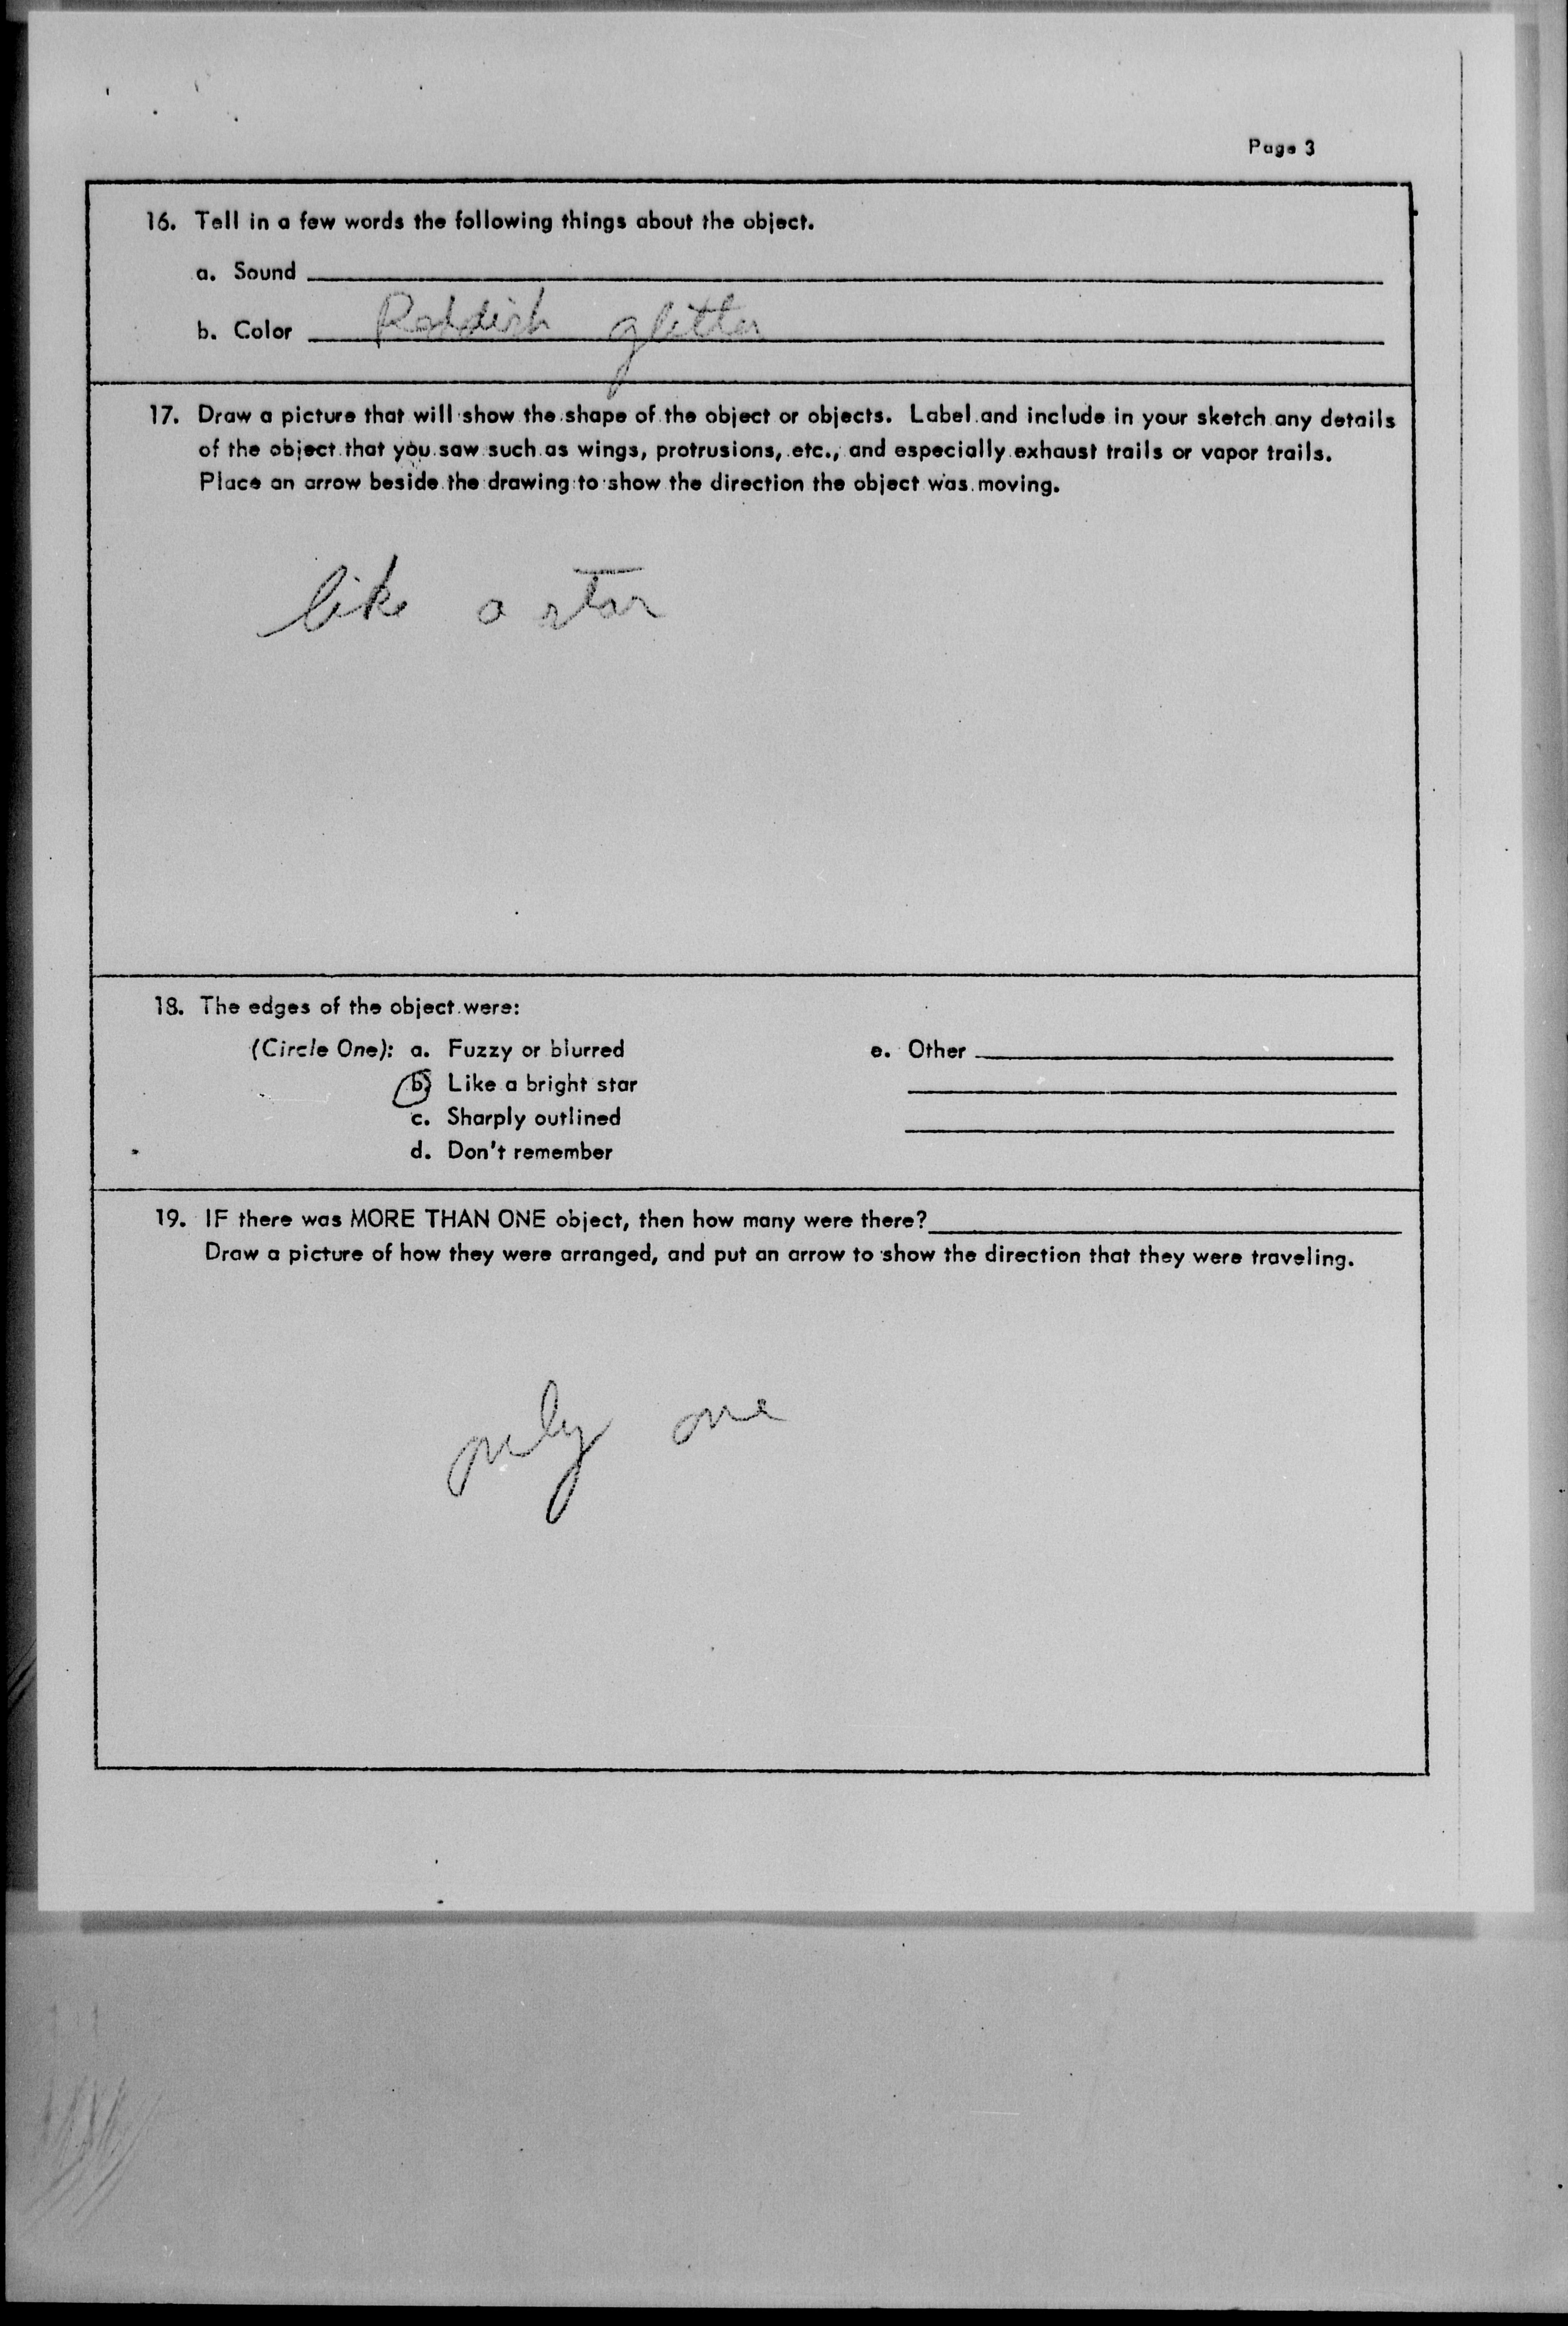 Page 3
16. Tell in a few words the following things about the object.
a. Sound
b. Color Reddish glitter
17. Draw a picture that will show the shape of the object or objects. Label and include in your sketch any details
of the object that you saw such as wings, protrusions, etc., and especially exhaust trails or vapor trails.
Place an arrow beside the drawing to show the direction the object was moving.
like a star
18. The edges of the object were:
(Circle One): a. Fuzzy or blurred e. Other
b. Like a bright star
c. Sharply outlined
d. Don't remember
19. IF there was MORE THAN ONE object, then how many were there?
Draw a picture of how they were arranged, and put an arrow to show the direction that they were traveling.
only one